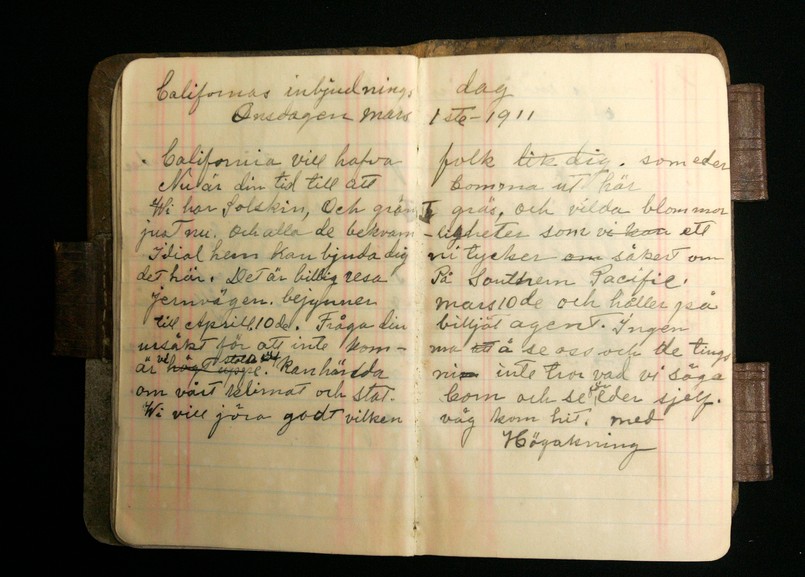 Californias inbjudnings dag
Onsdagen mars 1 ste - 1911
California vill hafva folk lik dig. som eder
Nu är din tid till att komma ut här
Wi har Solskin, Och grönt gräs, och vilda blommor
just nu. och alla de bekvam-ligheter som vi kan ett
Idial hem kan bjuda dig ni tycker om säkert om
det här. Det är billig resa På Southern Pacific.
jernvägen. begynner mars 10 de och håller på
till April 10 de. Fråga din billjet agent. Ingen
ursäkt för att inte kom-ma att å se oss och the tings
är högt uppe. kanhända ni inte tror vad vi säga
om vårt klimat och stat. kom och se eder sjelf.
Wi vill göra godt vilken väg kom hit. med
Högakning